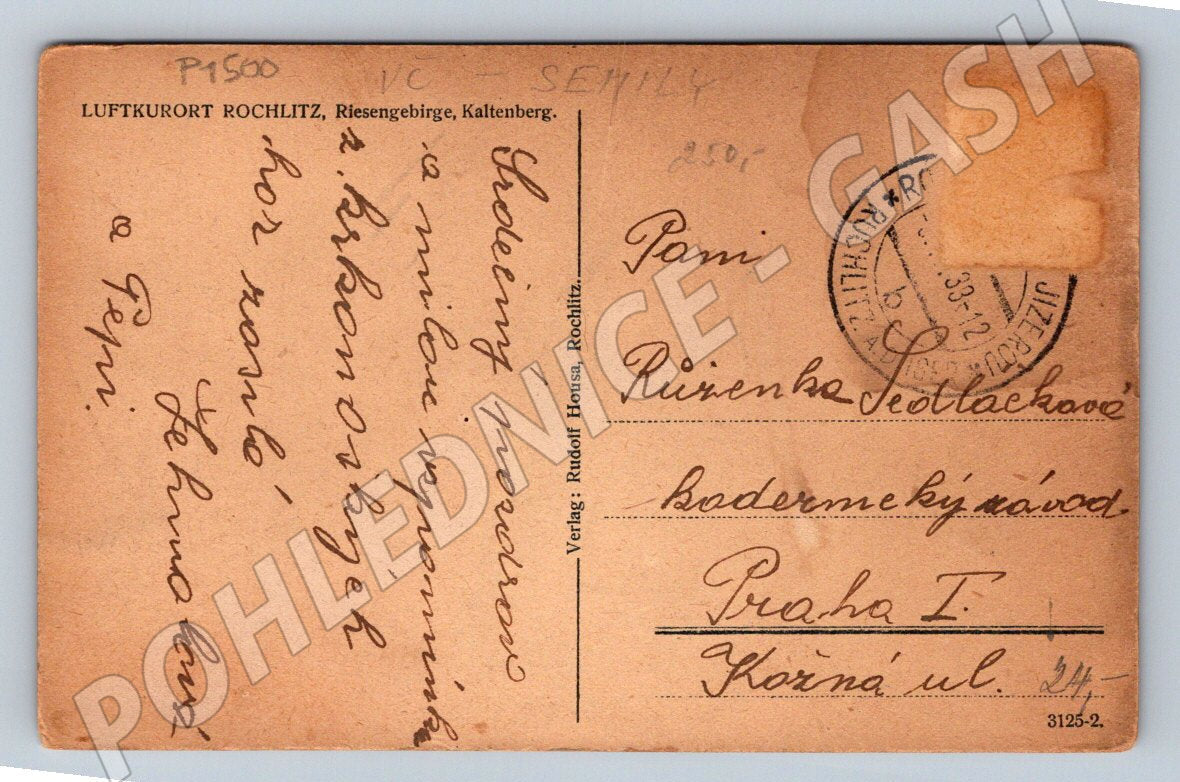 P1500
VČ - SEMILY
LUFTKURORT ROCHLITZ, Riesengebirge, Kaltenberg.
250,-
Srdečný pozdrav
a milou vzpomínku
z krkonošských
hor zasílá
a Pepi.
Verlag: Rudolf Housa, Rochlitz.
ROCHLITZ A. D. ISER
JIZEROU
33-12
b
Paní
Růženka Sedláčková
kadeřnický závod
Praha I.
Kožná ul. 24,-
3125-2.
POHLEDNICE - GASH